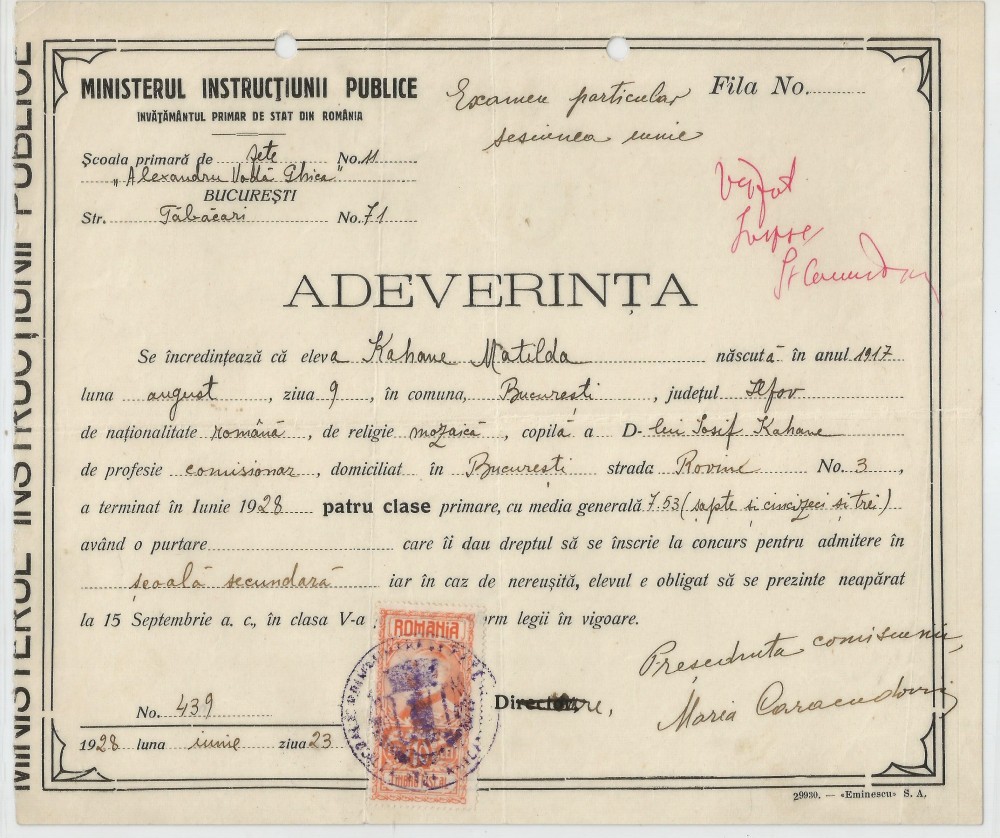 MINISTERUL INSTRUCȚIUNII PUBLICE
MINISTERUL INSTRUCȚIUNII PUBLICE
INVĂȚĂMÂNTUL PRIMAR DE STAT DIN ROMÂNIA
Examen particular
sesiunea iunie
Fila No.
Școala primară de fete No. 11
„Alexandru Vodă Ghica"
BUCUREȘTI
Str. Tăbăcari No. 71
ADEVERINȚA
Se încredințează că eleva Kahane Matilda născută în anul 1917
luna august, ziua 9, în comuna, București, județul Ilfov
de naționalitate română, de religie mozaică, copilă a D-lui Iosif Kahane
de profesie comisionar, domiciliat în București strada Rovine No. 3,
a terminat în Iunie 1928 patru clase primare, cu media generală 7.53 (șapte și cincizeci și trei)
având o purtare care îi dau dreptul să se înscrie la concurs pentru admitere în
școală secundară iar în caz de nereușită, elevul e obligat să se prezinte neapărat
la 15 Septembrie a. c., în clasa V-a orm legii în vigoare.
ROMANIA
Președinta comisiunii,
Maria
No. 439
1928 luna iunie ziua 23
29930. — «Eminescu» S. A.